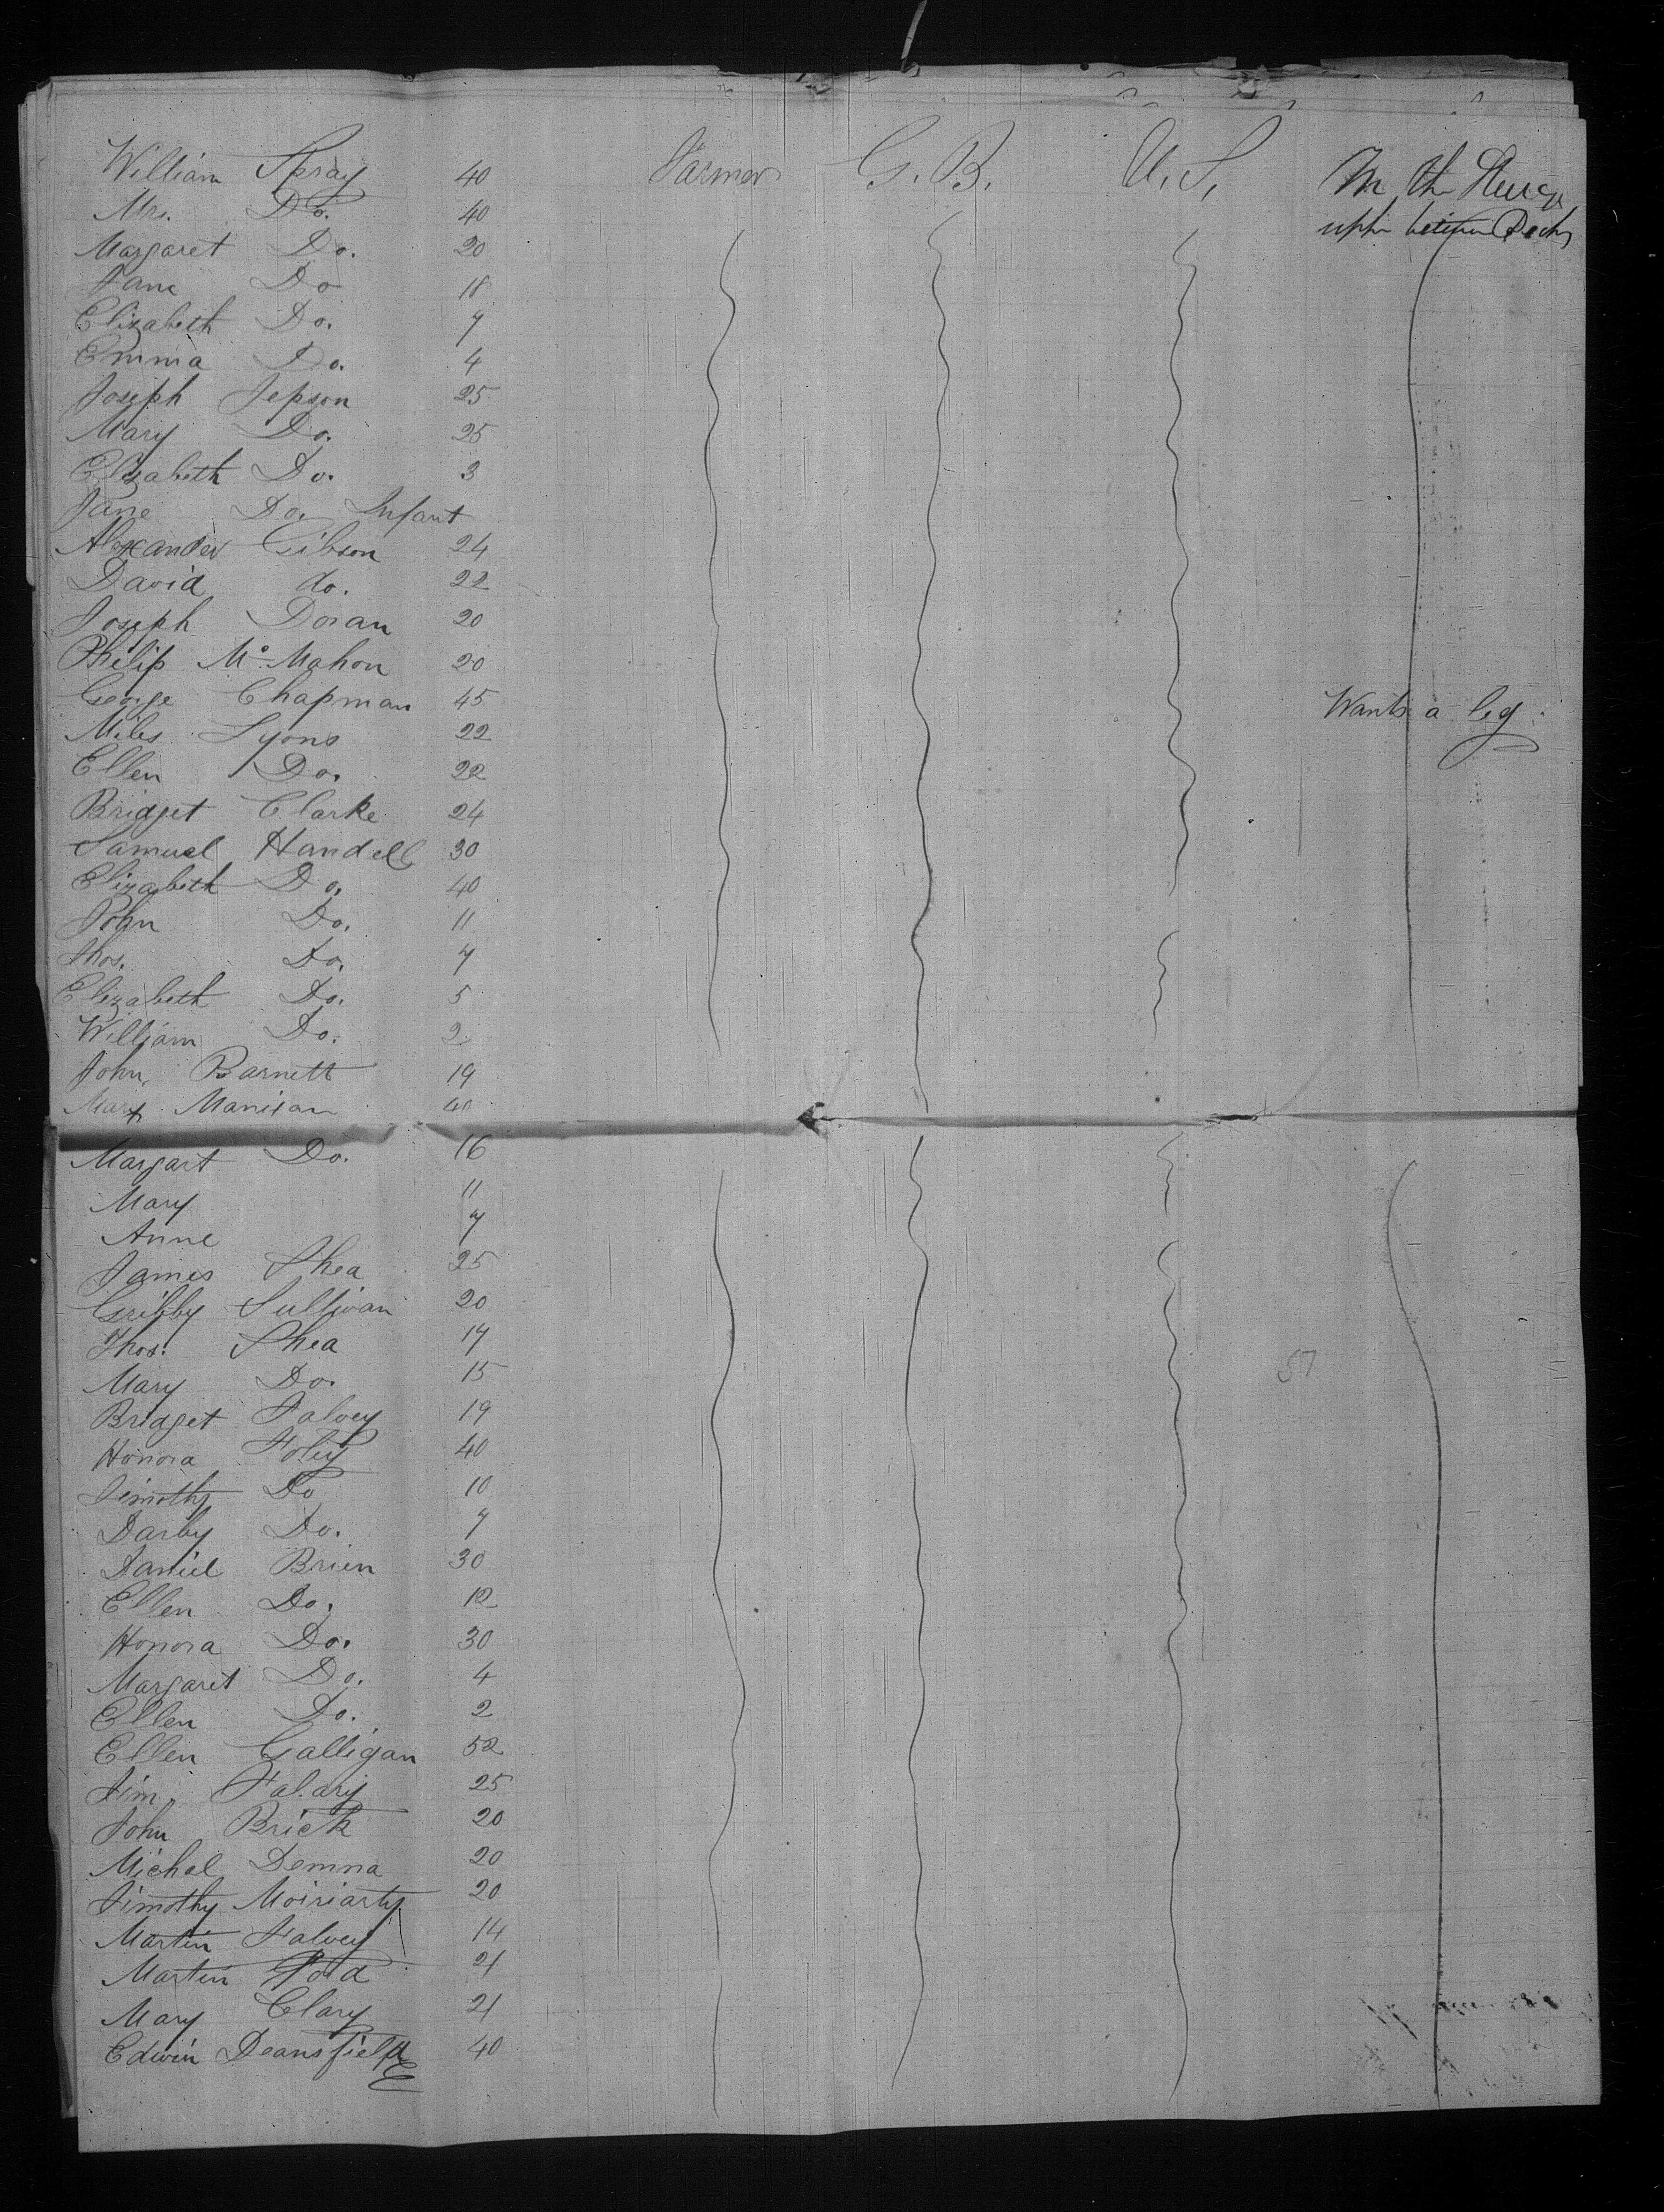 William Spray 40 Farmer G. B. U. S. In the Steerage
Mrs. Do. 40 upper between Decks
Margaret Do. 20
Jane Do 18
Elizabeth Do. 7
Emma Do. 4
Joseph Jepson 25
Mary Do. 25
Elizabeth Do. 3
Jane Do. Infant
Alexander Gibson 24
David do. 22
Joseph Doran 20
Philip Mc Mahon 20
George Chapman 45 Wants a leg
Miles Lyons 22
Ellen Do. 22
Bridget Clarke 24
Samuel Handell 30
Elizabeth Do. 40
John Do. 11
Thos. Do. 7
Elizabeth Do. 5
William Do. 2
John Barnett 19
Mary 40
Margart Do. 16
Mary 11
Anne 7
James Shea 25
Sullivan 20
Thos. Shea 17
Mary Do. 15
Bridget Falvey 19
Honora Foley 40
Timothy Do 10
Darby Do. 7
Daniel Brien 30
Ellen Do. 12
Honora Do. 30
Margaret Do. 4
Ellen Do. 2
Ellen Galligan 52
Tim. 25
John Brick 20
Michel Demna 20
Timothy Moiriarty 20
Martin Falvey 14
Martin 21
Mary Clary 21
Edwin Deansfield 40